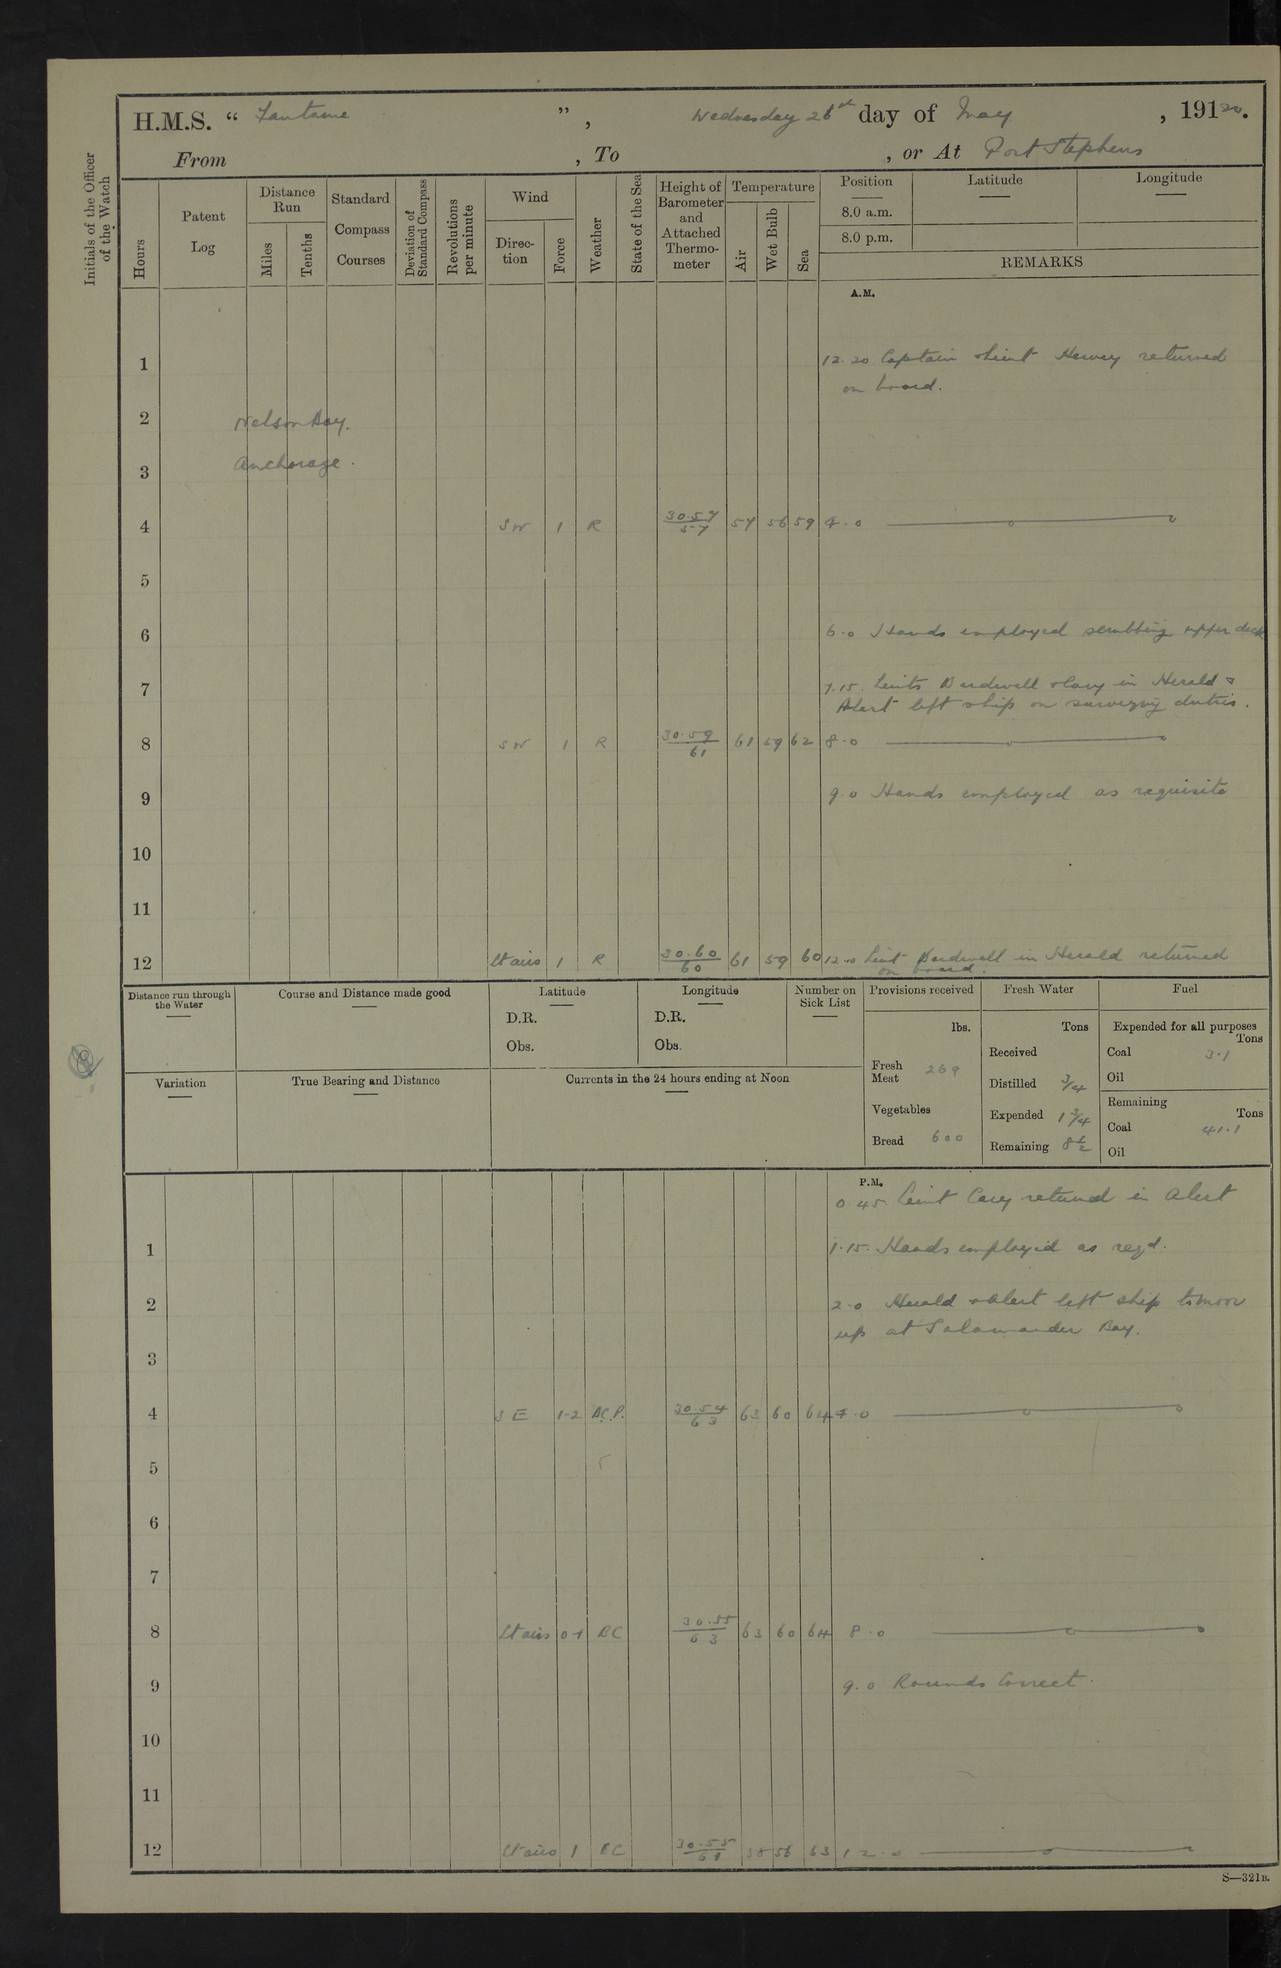 H.M.S. “ Fantome ”, Wednesday 26th day of May , 19120.
From , To , or At Port Stephens
Initials of the Officer of the Watch
Hours
Patent Log
Distance Run
Miles
Tenths
Standard Compass Courses
Deviation of Standard Compass
Revolutions per minute
Wind
Direc-tion
Force
Weather
State of the Sea
Height of Barometer and Attached Thermo-meter
Temperature
Air
Wet Bulb
Sea
Position
Latitude
Longitude
8.0 a.m.
8.0 p.m.
REMARKS
A.M.
1 12.20 Captain & Lieut Hervey returned
on board.
2 Nelson Bay.
3 Anchorage.
4 SW 1 R 30.57 57 57 56 59 4.0
5
6 6.0 Hands employed scrubbing upper deck
7 7.15. Lieuts Bardwell & Cary in Herald &
Alert left ship on surveying duties.
8 SW 1 R 30.59 61 61 59 62 8.0
9 9.0 Hands employed as requisite
10
11
12 Lt airs 1 R 30.60 60 61 59 60 12.0 Lieut Bardwell in Herald returned
on board.
Distance run through the Water
Course and Distance made good
Latitude
D.R.
Obs.
Longitude
D.R.
Obs.
Number on Sick List
Provisions received
lbs.
Fresh Meat 269
Vegetables
Bread 600
Fresh Water
Tons
Received
Distilled 3/4
Expended 1 3/4
Remaining 8 1/2
Fuel
Expended for all purposes
Tons
Coal 3.1
Oil
Remaining
Tons
Coal 41.1
Oil
Variation
True Bearing and Distance
Currents in the 24 hours ending at Noon
P.M.
0.45 Lieut Cary returned in Alert
1 1.15. Hands employed as reqd.
2 2.0 Herald & Alert left ship to moor
up at Salamander Bay.
3
4 SE 1-2 B.C.P. 30.54 63 63 60 64 4.0
5
6
7
8 Lt airs 0-1 BC 30.55 63 63 60 64 8.0
9 9.0 Rounds Correct.
10
11
12 Lt airs 1 BC 30.55 58 56 63 12.0
S—321B.